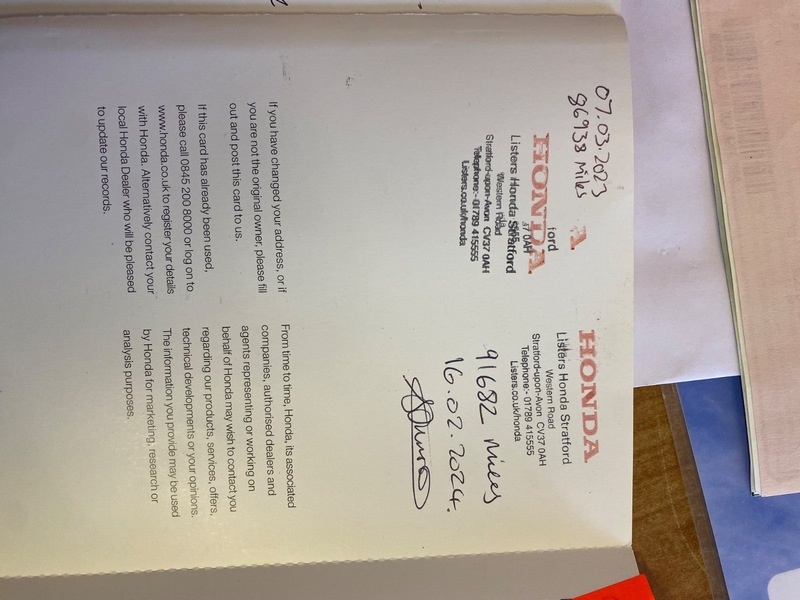 07.03.2023
86938 Miles
A
ford
37 0AH
HONDA
Listers Honda Stratford
Western Road
Stratford-upon-Avon CV37 0AH
Telephone:- 01789 415555
Listers.co.uk/honda
If you have changed your address, or if
you are not the original owner, please fill
out and post this card to us.
If this card has already been used,
please call 0845 200 8000 or log on to
www.honda.co.uk to register your details
with Honda. Alternatively contact your
local Honda Dealer who will be pleased
to update our records.
HONDA
Listers Honda Stratford
Western Road
Stratford-upon-Avon CV37 0AH
Telephone:- 01789 415555
Listers.co.uk/honda
91682 Miles
16.02.2024.
From time to time, Honda, its associated
companies, authorised dealers and
agents representing or working on
behalf of Honda may wish to contact you
regarding our products, services, offers,
technical developments or your opinions.
The information you provide may be used
by Honda for marketing, research or
analysis purposes.